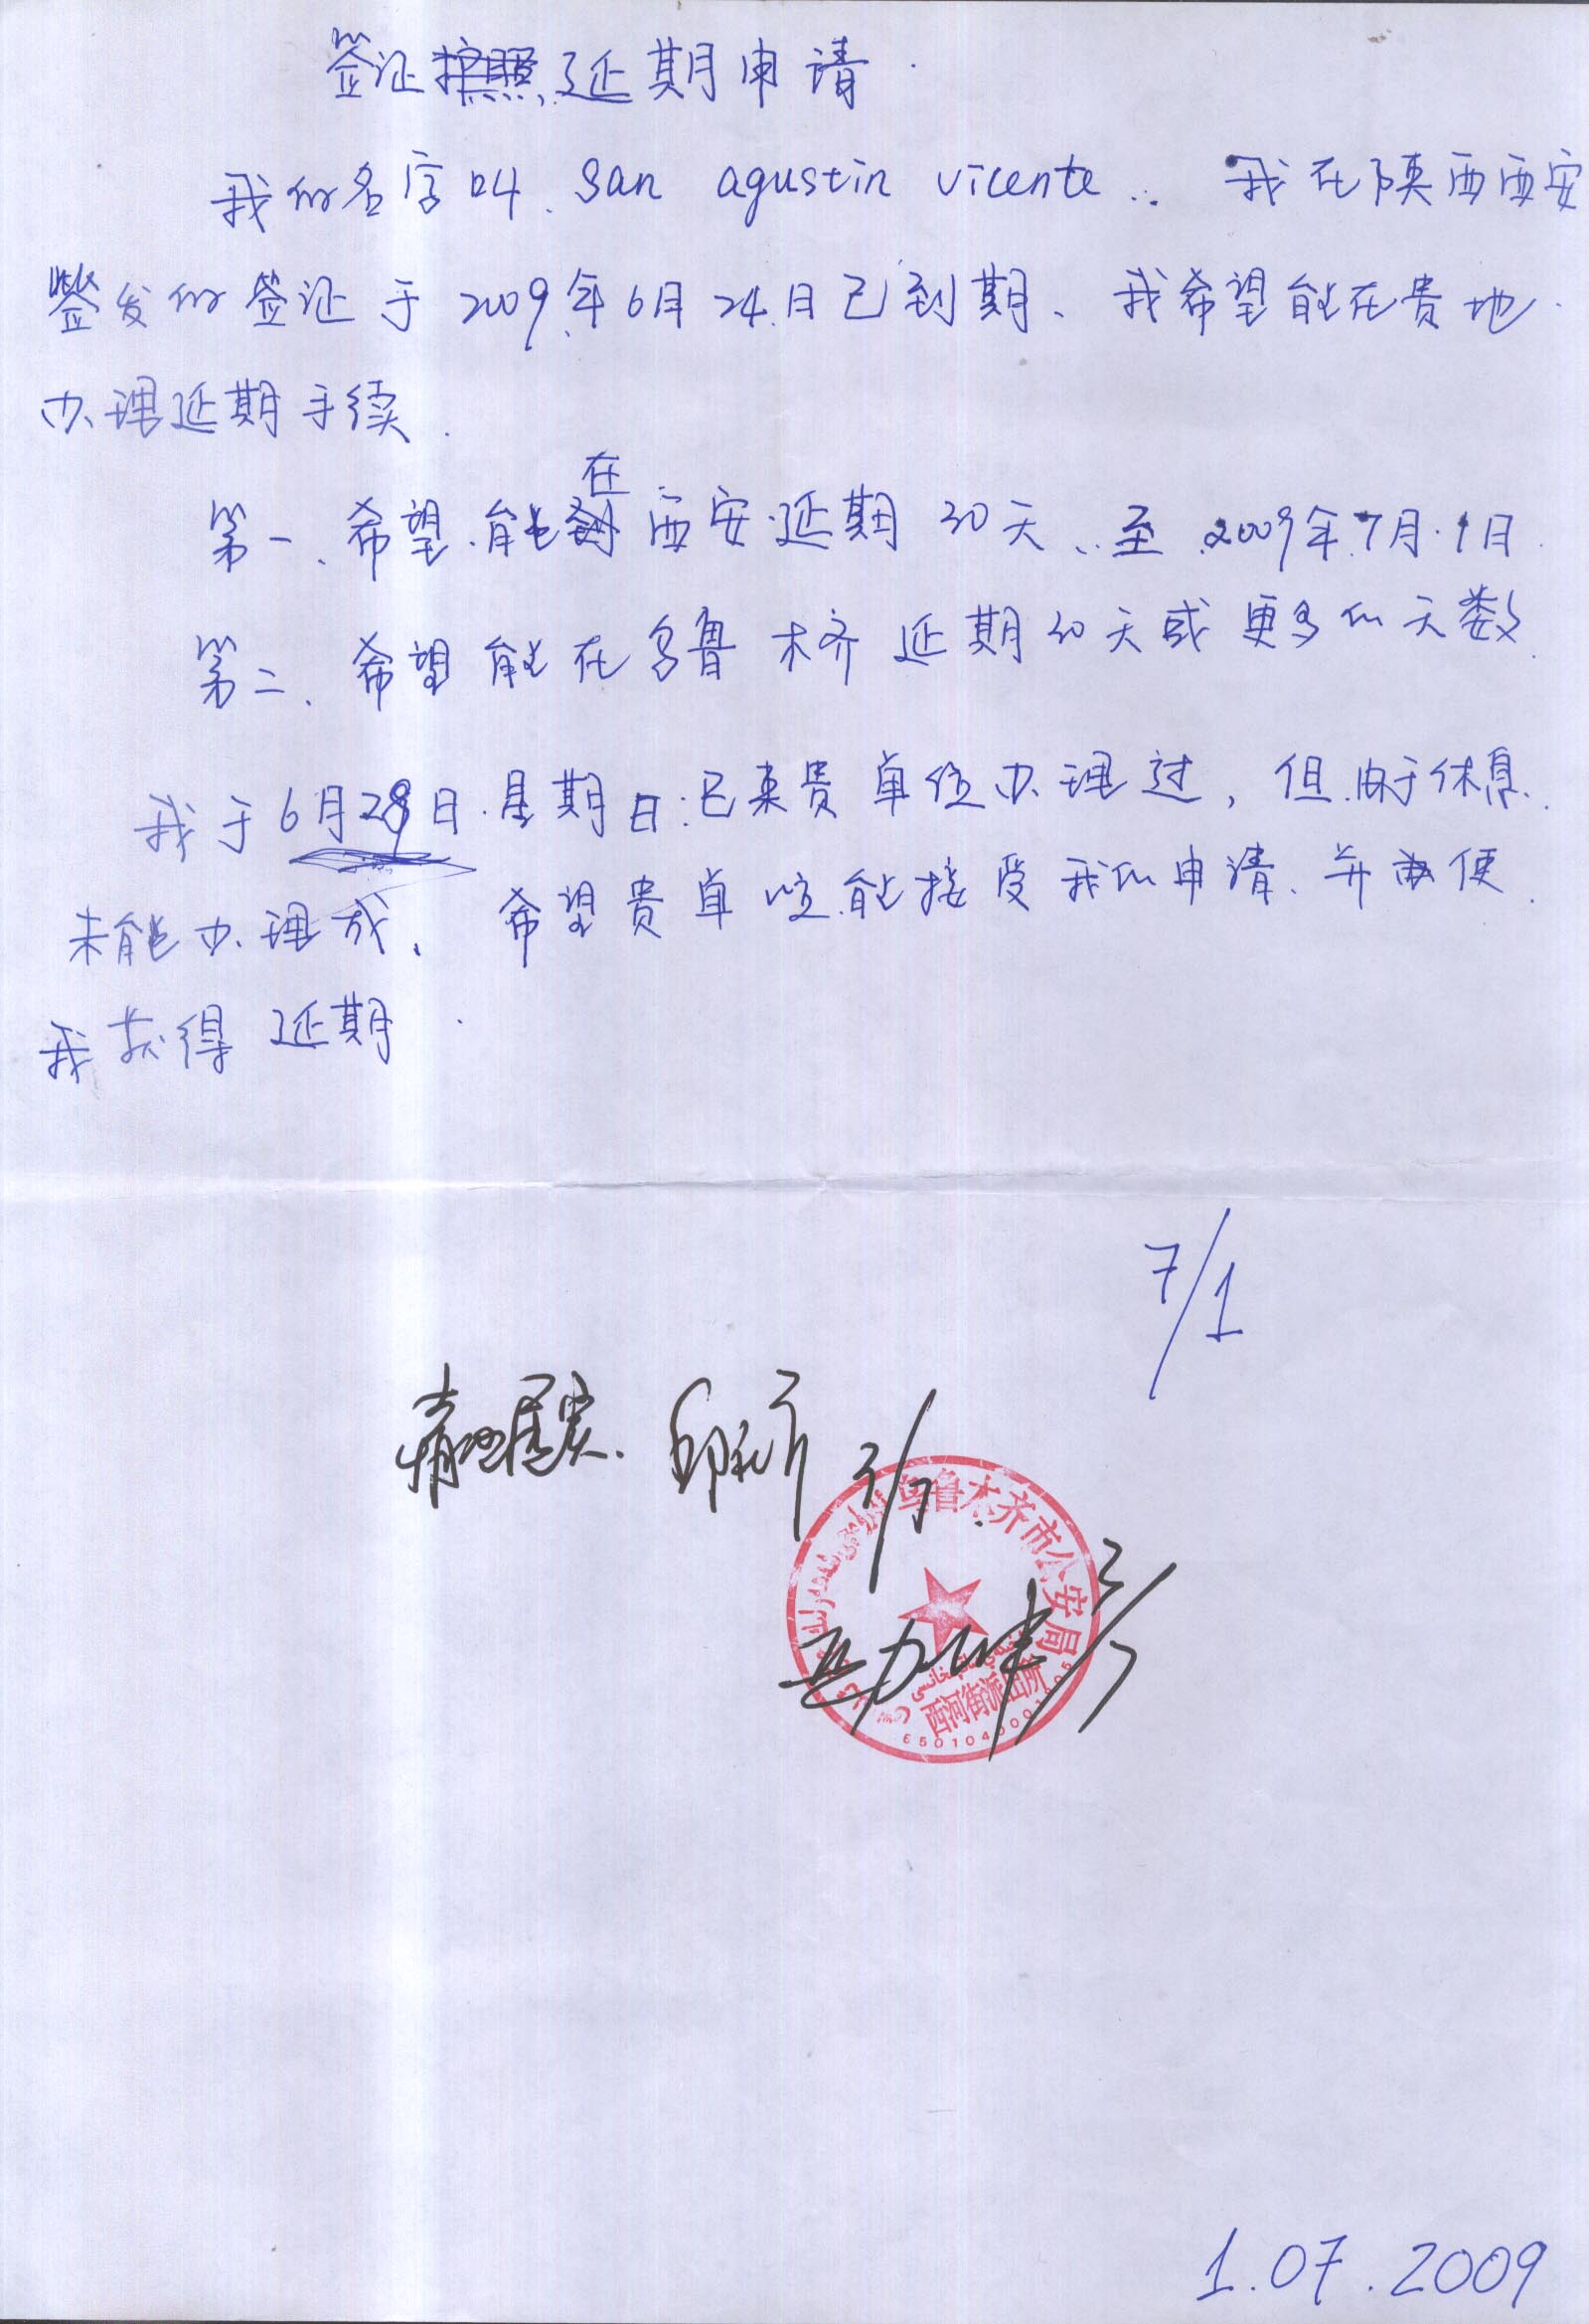 签证延期申请.
我的名字叫. San agustin vicente.. 我在陕西西安
签发的签证于2009年6月24日已到期、我希望能在贵地
办理延期手续.
第一、希望能在西安延期30天、至2009年7月1日.
第二、希望能在乌鲁木齐延期30天或更多的天数.
我于6月28日.星期日:已来贵单位办理过,但由于休息.
未能办理成、希望贵单位能接受我的申请、并使
我获得延期.
7/1
情况属实.
乌鲁木齐市公安局
西河街派出所
1.07.2009